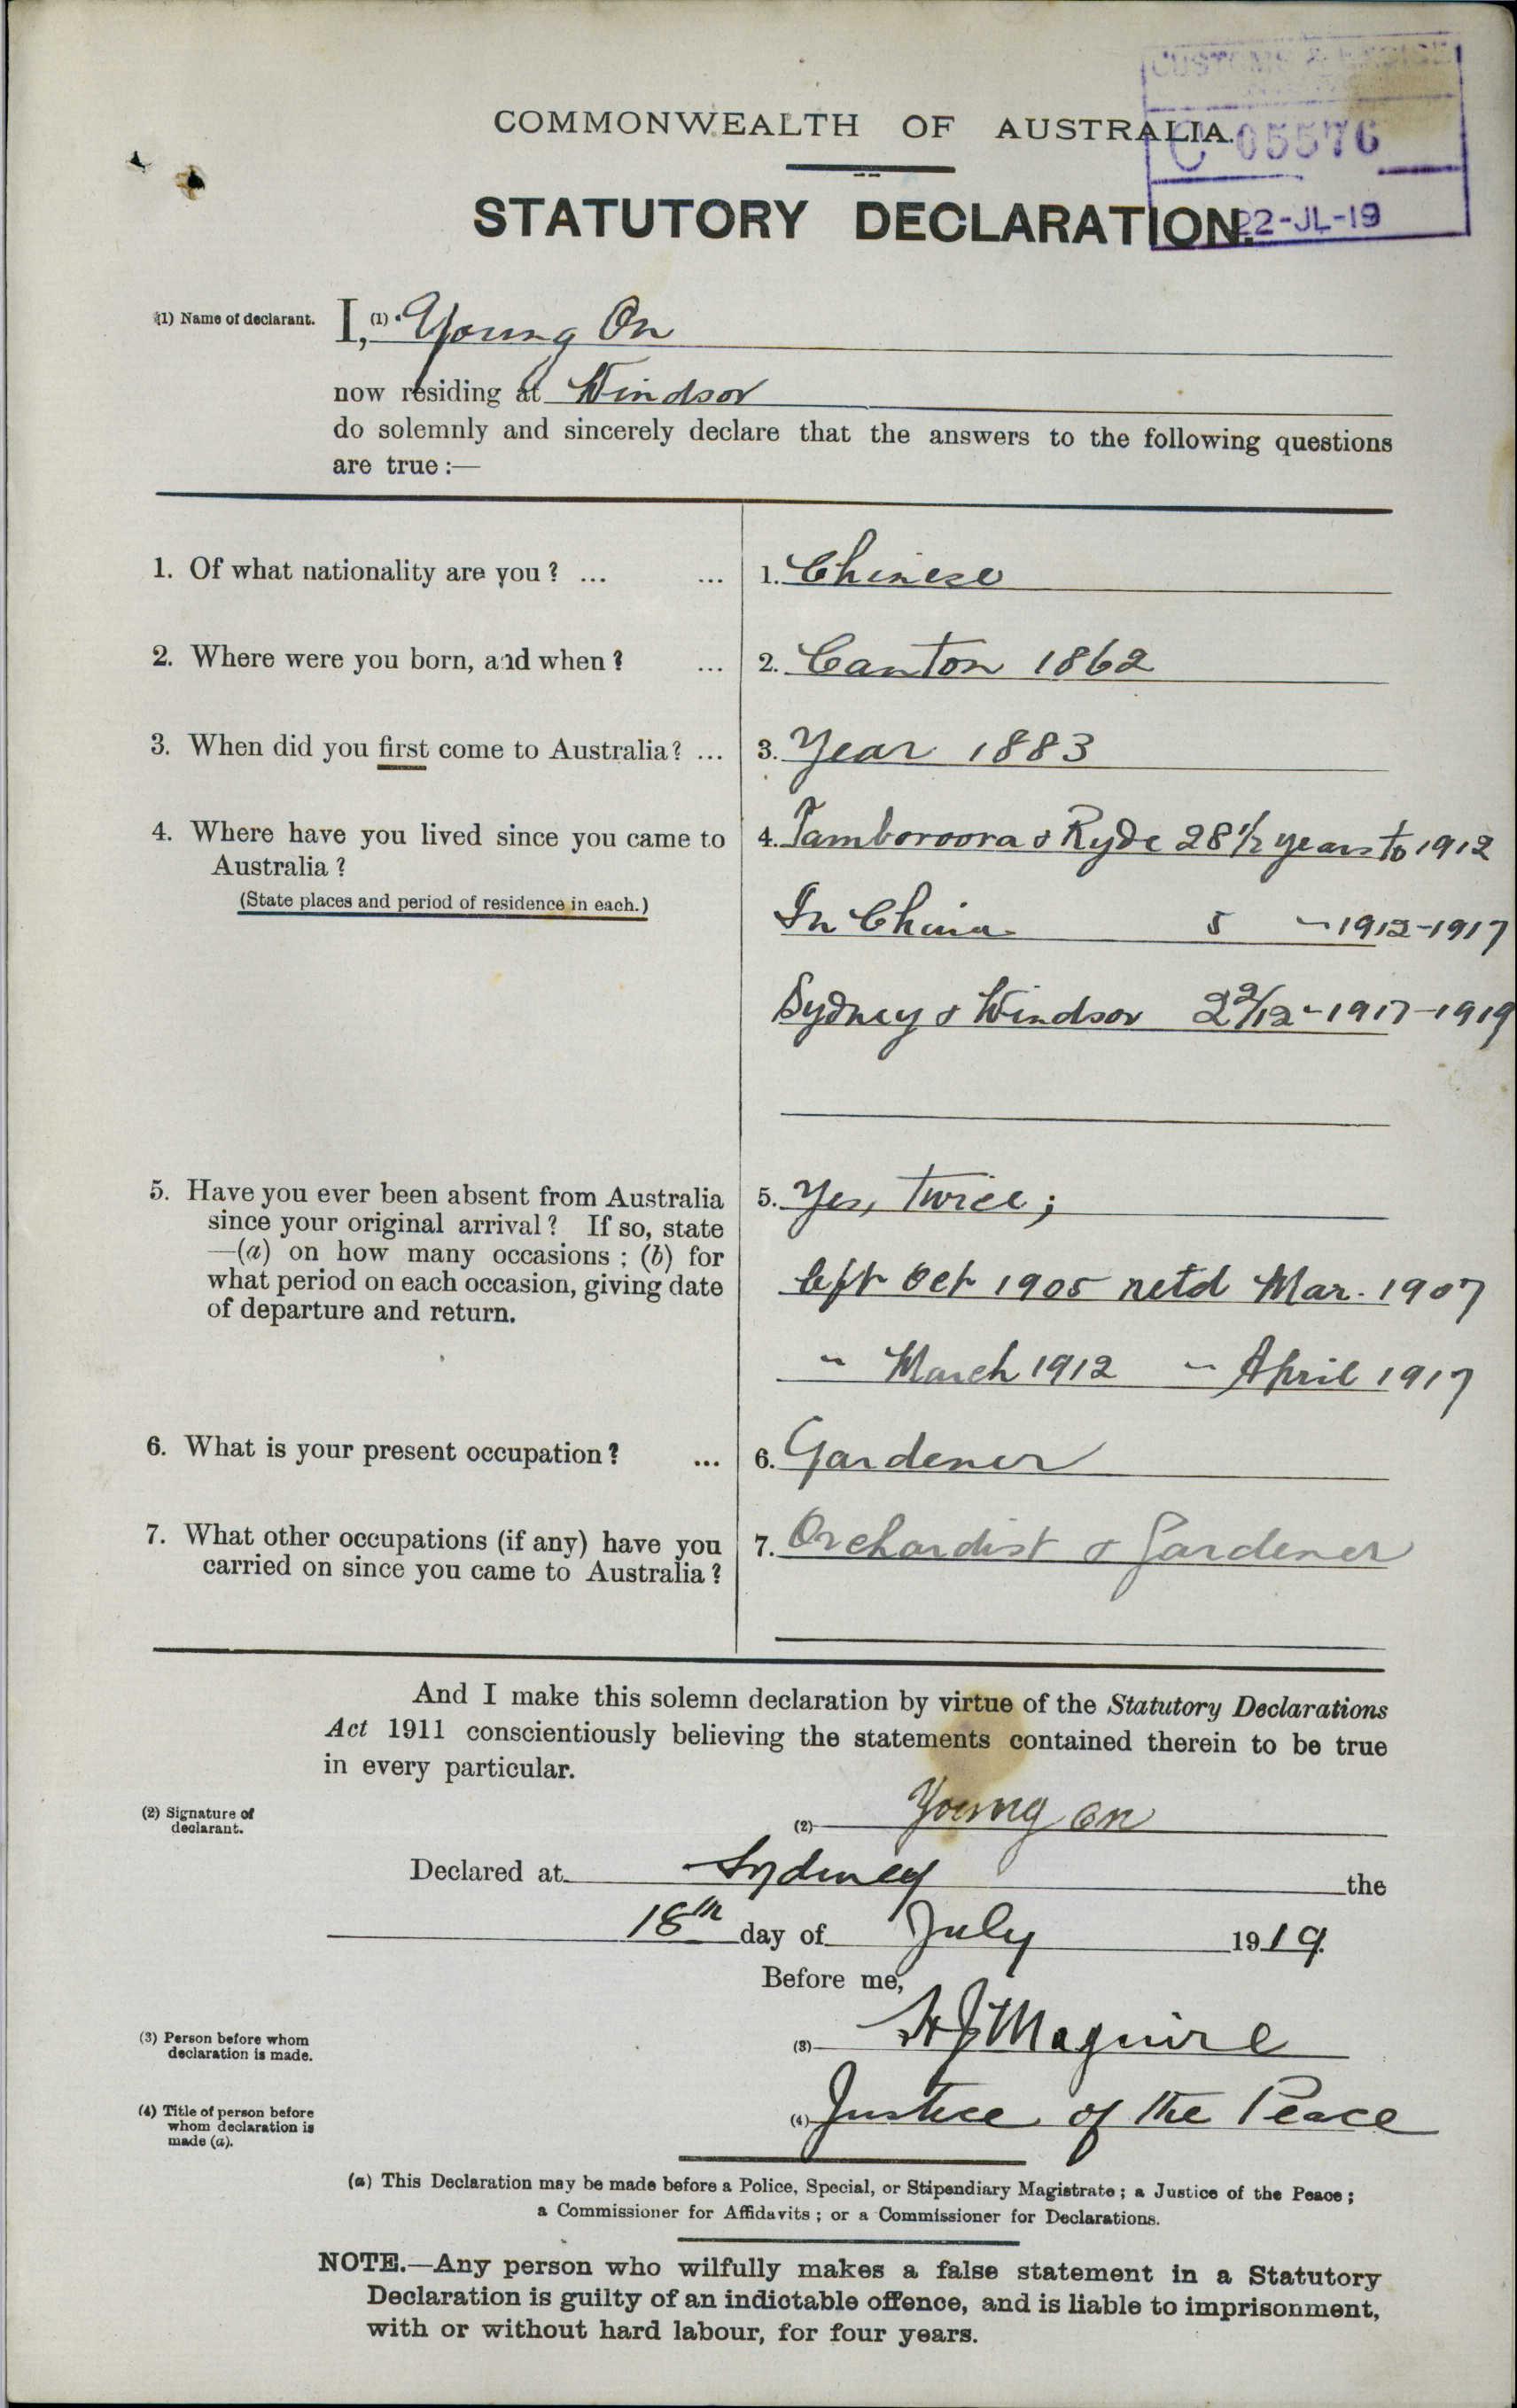 CUSTOMS & EXCISE
C 05576
22-JL-19
COMMONWEALTH OF AUSTRALIA.
STATUTORY DECLARATION.
(1) Name of declarant. I, (1) Young On
now residing at Windsor
do solemnly and sincerely declare that the answers to the following questions
are true:—
1. Of what nationality are you? ... ... 1. Chinese
2. Where were you born, and when? ... 2. Canton 1862
3. When did you first come to Australia? ... 3. Year 1883
4. Where have you lived since you came to 4. Tamboroora & Ryde 28 1/2 years to 1912
Australia?
(State places and period of residence in each.) In China 5 " 1912-1917
Sydney & Windsor 2 2/12 " 1917-1919
5. Have you ever been absent from Australia 5. Yes, twice;
since your original arrival? If so, state
—(a) on how many occasions; (b) for
what period on each occasion, giving date left Oct 1905 retd Mar. 1907
of departure and return.
" March 1912 " April 1917
6. What is your present occupation? ... 6. Gardener
7. What other occupations (if any) have you 7. Orchardist & Gardener
carried on since you came to Australia?
And I make this solemn declaration by virtue of the Statutory Declarations
Act 1911 conscientiously believing the statements contained therein to be true
in every particular.
(2) Signature of
declarant. (2) Young On
Declared at Sydney the
18th day of July 1919.
Before me,
(3) Person before whom
declaration is made. (3) Maguire
(4) Title of person before
whom declaration is
made (a). (4) Justice of the Peace
(a) This Declaration may be made before a Police, Special, or Stipendiary Magistrate; a Justice of the Peace;
a Commissioner for Affidavits; or a Commissioner for Declarations.
NOTE.—Any person who wilfully makes a false statement in a Statutory
Declaration is guilty of an indictable offence, and is liable to imprisonment,
with or without hard labour, for four years.